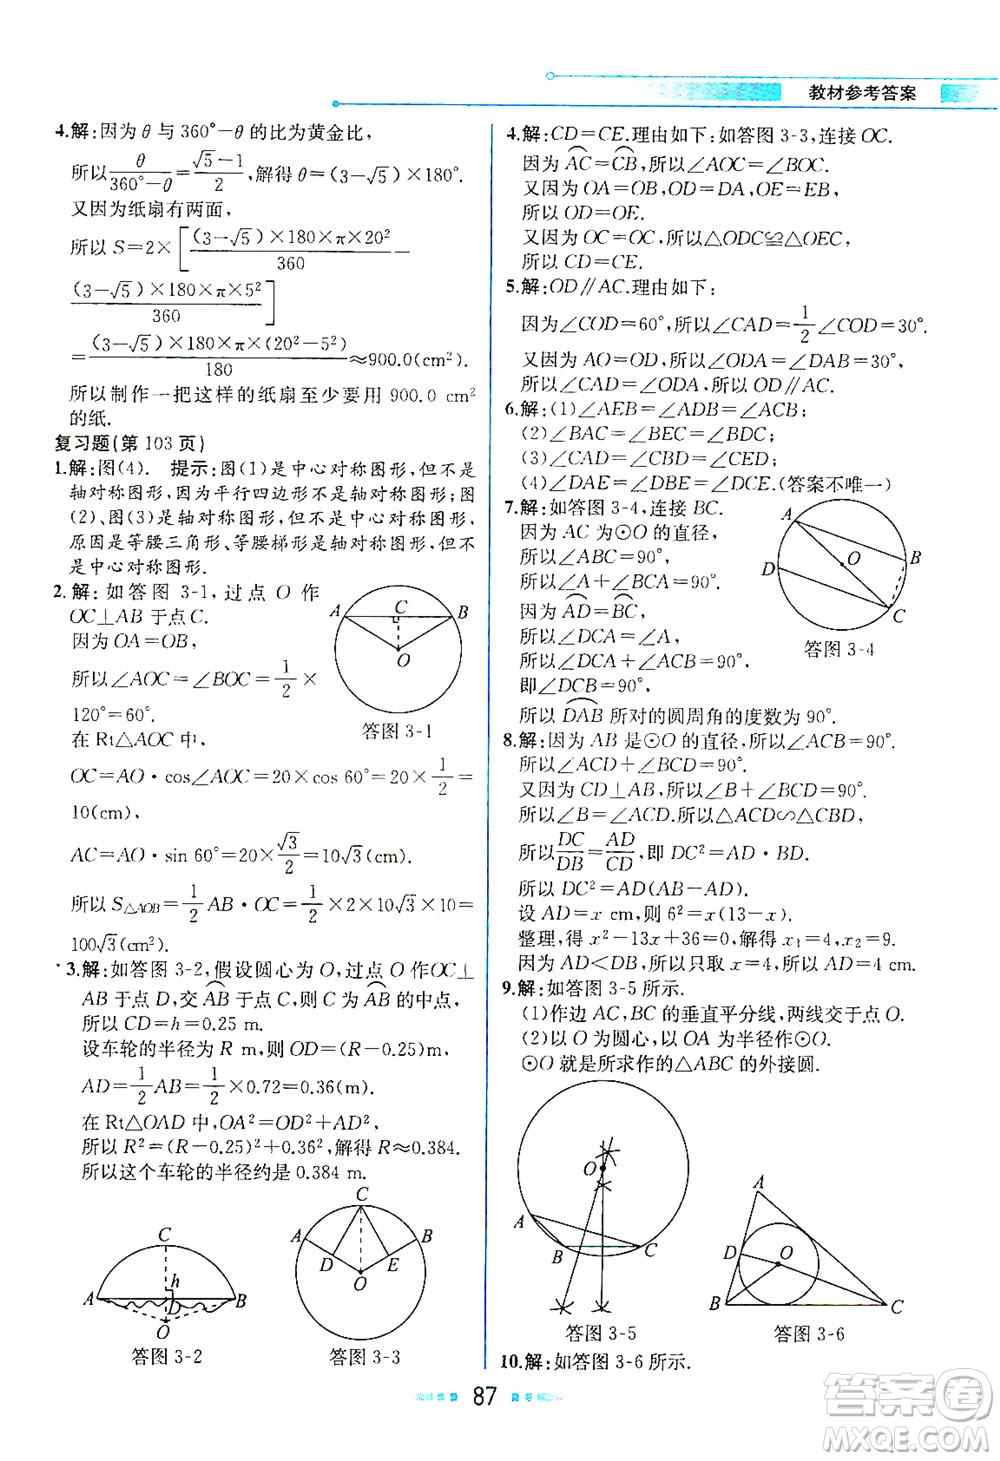 教材参考答案
4.解:因为θ与360°-θ的比为黄金比,
所以θ/(360°-θ)=(√5-1)/2,解得θ=(3-√5)×180°.
又因为纸扇有两面,
所以S=2×[(3-√5)×180×π×20²/360-
(3-√5)×180×π×5²/360]
=(3-√5)×180×π×(20²-5²)/180≈900.0(cm²)
所以制作一把这样的纸扇至少要用900.0 cm²
的纸.
复习题(第103页)
1.解:图(4). 提示:图(1)是中心对称图形,但不是
轴对称图形,因为平行四边形不是轴对称图形;图
(2)、图(3)是轴对称图形,但不是中心对称图形,
原因是等腰三角形、等腰梯形是轴对称图形,但不
是中心对称图形.
2.解:如答图3-1,过点O作
OC⊥AB于点C.
因为OA=OB,
所以∠AOC=∠BOC=1/2×
120°=60°.
在Rt△AOC中,
A C B O
答图3-1
OC=AO·cos∠AOC=20×cos 60°=20×1/2=
10(cm),
AC=AO·sin 60°=20×√3/2=10√3(cm).
所以S△AOB=1/2AB·OC=1/2×2×10√3×10=
100√3(cm²)
3.解:如答图3-2,假设圆心为O,过点O作OC⊥
AB于点D,交⌒AB于点C,则C为⌒AB的中点,
所以CD=h=0.25 m.
设车轮的半径为R m,则OD=(R-0.25)m.
AD=1/2AB=1/2×0.72=0.36(m),
在Rt△OAD中,OA²=OD²+AD²,
所以R²=(R-0.25)²+0.36²,解得R≈0.384.
所以这个车轮的半径约是0.384 m.
C h A D B O
答图3-2
C A B D E O
答图3-3
4.解:CD=CE.理由如下:如答图3-3,连接OC.
因为⌒AC=⌒CB,所以∠AOC=∠BOC.
又因为OA=OB,OD=DA,OE=EB,
所以OD=OE.
又因为OC=OC,所以△ODC≌△OEC,
所以CD=CE.
5.解:OD∥AC.理由如下:
因为∠COD=60°,所以∠CAD=1/2∠COD=30°.
又因为AO=OD,所以∠ODA=∠BAD=30°,
所以∠CAD=∠ODA,所以OD∥AC.
6.解:(1)∠AEB=∠ADB=∠ACB;
(2)∠BAC=∠BDC=∠BEC;
(3)∠CAD=∠CBD=∠CED;
(4)∠DAE=∠DBE=∠DCE.(答案不唯一)
7.解:如答图3-4,连接BC.
因为AC为⊙O的直径,
所以∠ABC=90°,
所以∠A+∠BCA=90°.
因为⌒AD=⌒BC,
所以∠DCA=∠A,
所以∠DCA+∠BCA=90°,
即∠DCB=90°,
所以⌒DAB所对的圆周角的度数为90°.
A B O D C
答图3-4
8.解:因为AB是⊙O的直径,所以∠ACB=90°.
所以∠ACD+∠BCD=90°.
又因为CD⊥AB,所以∠B+∠BCD=90°.
所以∠B=∠ACD.所以△ACD∽△CBD,
所以DC/DB=AD/CD,即DC²=AD·BD.
所以DC²=AD(AB-AD).
设AD=x cm,则6²=x(13-x).
整理,得x²-13x+36=0,解得x₁=4,x₂=9.
因为AD<DB,所以只取x=4,所以AD=4 cm.
9.解:如答图3-5所示.
(1)作边AC,BC的垂直平分线,两线交于点O.
(2)以O为圆心,以OA为半径作⊙O.
⊙O就是所求作的△ABC的外接圆.
O A B C
答图3-5
A D O B C
答图3-6
10.解:如答图3-6所示.
87
答案圈
MXQE.COM